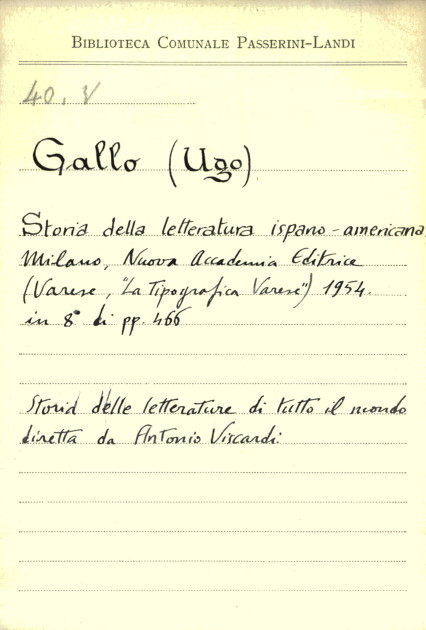 BIBLIOTECA COMUNALE PASSERINI-LANDI
40, V
Gallo (Ugo)
Storia della letteratura ispano-americana.
Milano, Nuova Accademia Editrice
(Varese, "La Tipografica Varese") 1954.
in 8° di pp. 466
Storia delle letterature di tutto il mondo
diretta da Antonio Viscardi